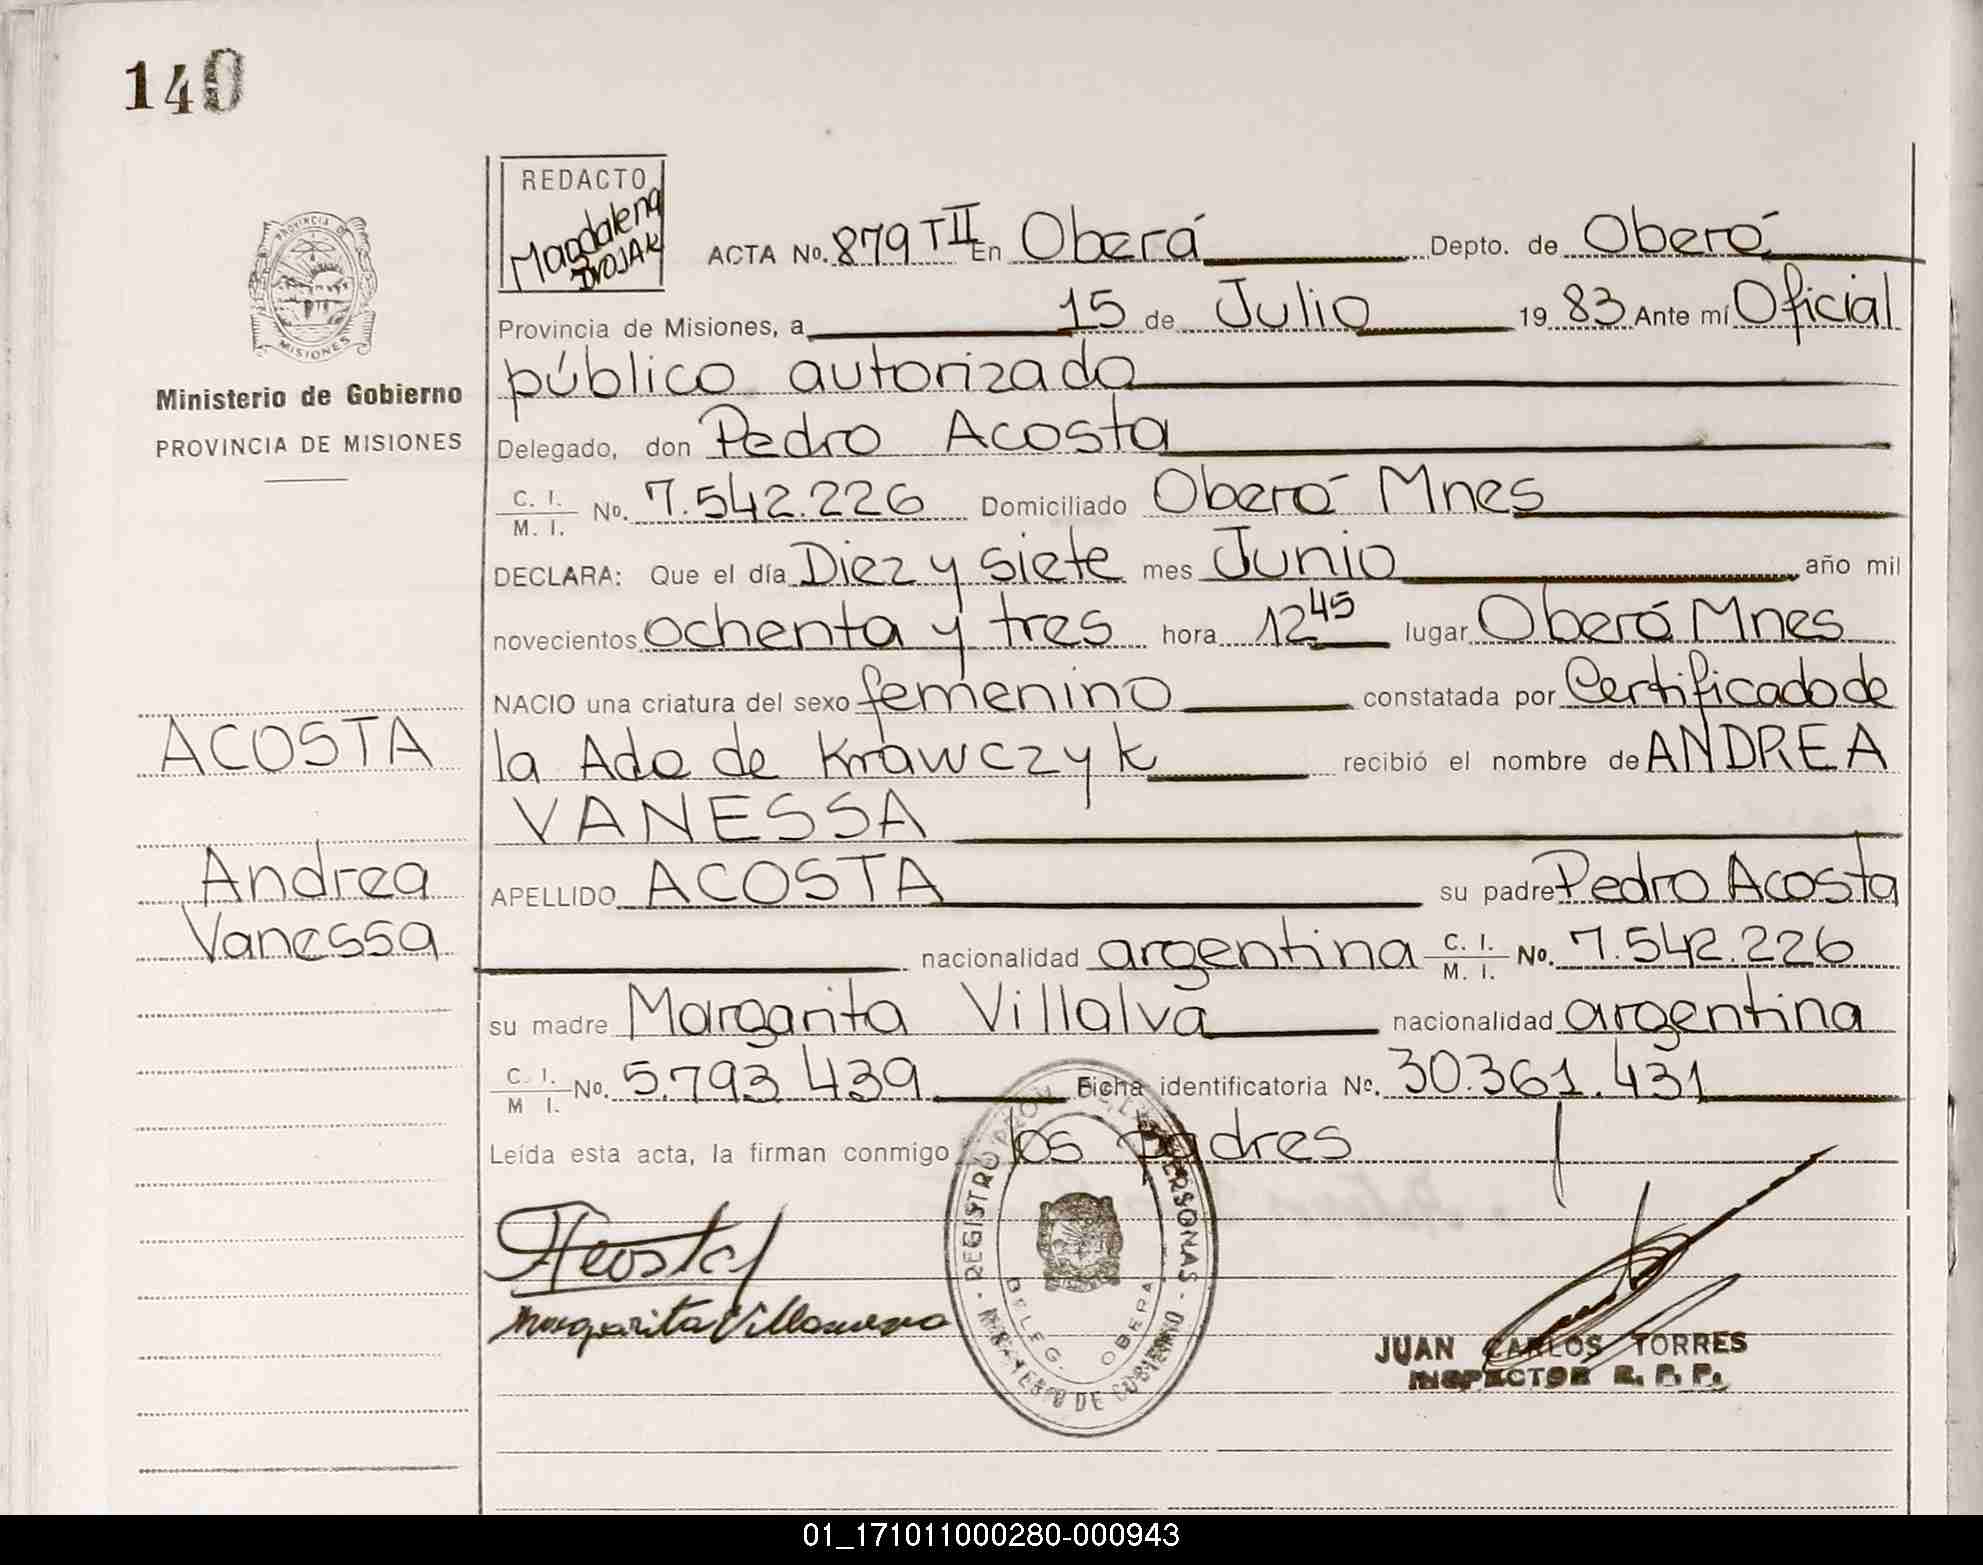 140
REDACTO
Magdalena
DVOJAK
ACTA No. 879 TII En Oberá Depto. de Oberá
Provincia de Misiones, a 15 de Julio 19 83 Ante mí Oficial
público autorizado
Delegado, don Pedro Acosta
C. I. / M. I. No. 7.542.226 Domiciliado Oberá Mnes
DECLARA: Que el día Diez y siete mes Junio año mil
novecientos ochenta y tres hora 12 45 lugar Oberá Mnes
NACIO una criatura del sexo femenino constatada por Certificado de
la Ada de Krawczyk recibió el nombre de ANDREA
VANESSA
APELLIDO ACOSTA su padre Pedro Acosta
nacionalidad argentina C. I. / M. I. No. 7.542.226
su madre Margarita Villalva nacionalidad argentina
C. I. / M I. No. 5.793.439 Ficha identificatoria No. 30.361.431
Leída esta acta, la firman conmigo los padres
PROVINCIA DE
MISIONES
Ministerio de Gobierno
PROVINCIA DE MISIONES
ACOSTA
Andrea
Vanessa
Acosta
Margarita
REGISTRO PERSONAS
DELEG. OBERA
DE GOBIERNO
JUAN CARLOS TORRES
INSPECTOR R. P. P.
01_171011000280-000943